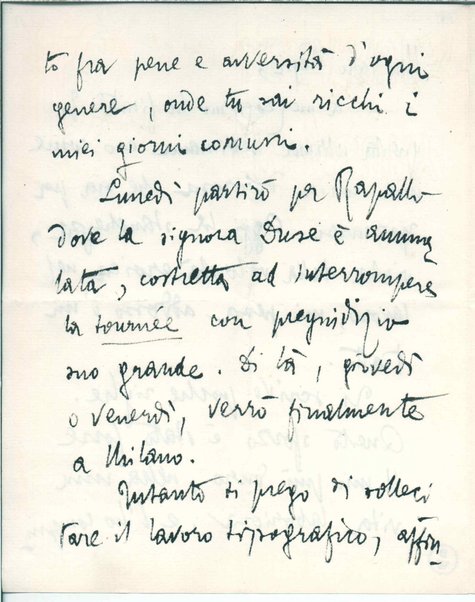 to fra pene e avversità d'ogni
genere, onde tu sai ricchi i
miei giorni comuni.
Lunedì partirò per Rapallo
dove la signora Duse è amma
lata, costretta ad interrompere
la tournée con pregiudizio
suo grande. Di là, giovedì
o venerdì, verrò finalmente
a Milano.
Intanto ti prego di solleci
tare il lavoro tipografico, affin